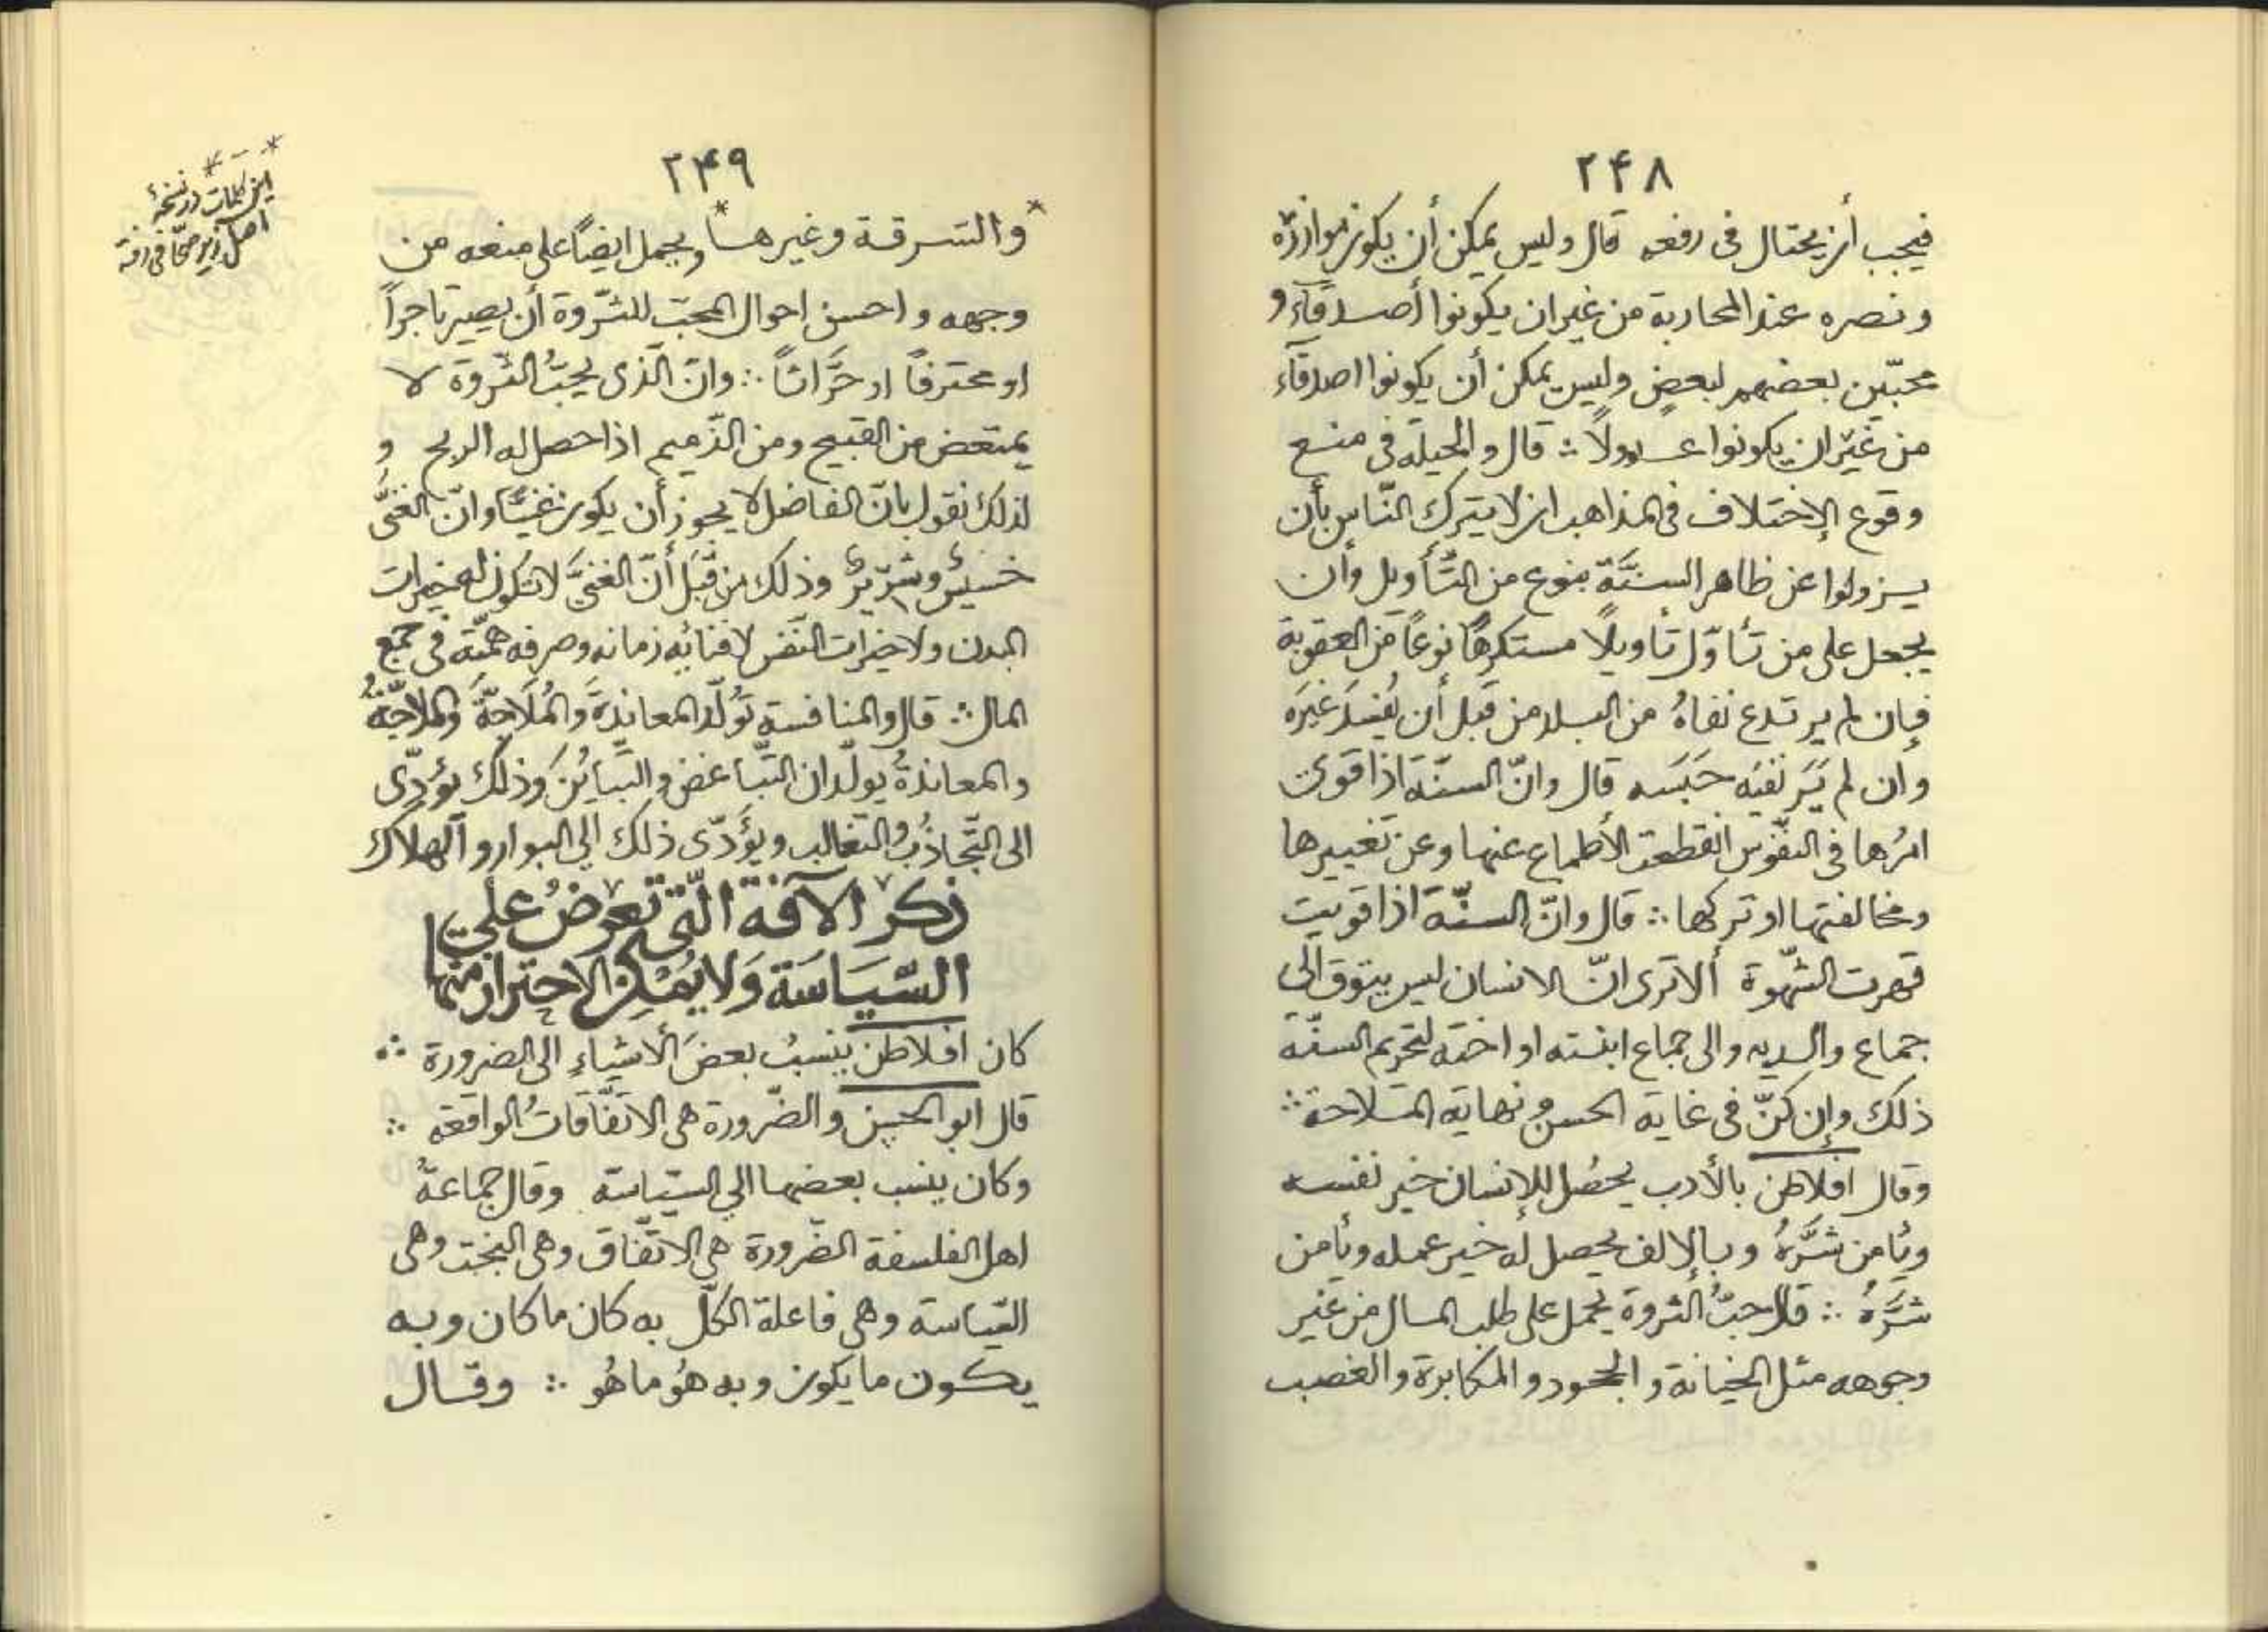 ٢۴٨
فيجب أن يحتال فى رفعه قال وليس يمكن أن يكون موازرة
ونصره عند المحاربة من غير ان يكونوا أصدقآء و
محبّين بعضهم لبعضٍ وليس يمكن أن يكونوا اصدقآء
من غير ان يكونوا عدولاً ∴ قال والحيلة فى منع
وقوع الإختلاف فى المذاهب ان لا يترك النّاس بأن
يزولوا عن ظاهر السنّة بنوع من التّأويل وأن
يجعل على من تأوّل تأويلاً مستكرهاً نوعاً من العقوبة
فإن لم يرتدع نفاهُ من البلد من قبل أن يُفسدَ غيرَه
وان لم يَرَ نفيَه حَبَسَه قال وانّ السنّة اذا قوى
امرُها فى النّفوس انقطعت الأطماع عنها وعن تغييرها
ومخالفتها او تركها ∴ قال وانّ السنّة اذا قويت
قهرت الشّهوة ألا ترى انّ الانسان ليس يتوق الى
جماع والديه والى جماع ابنته او اخته لتحريم السنّة
ذلك وإن كنّ فى غاية الحسن ونهاية الملاحة ∴
وقال افلاطن بالأدب يحصُل للإنسان خير نفسه
ويأمن شرَّهُ وبالإلف يحصل له خير عمله ويأمن
شرَّهُ ∴ قال حبُّ الثروة يحمل على طلب المال من غير
وجهه مثل الخيانة والجحود والمكابرة والغصب
٢۴٩
*والسرقة وغيرها* ويحمل ايضاً على منعه من
وجهه واحسن احوال المحبّ للثّروة أن يصير تاجراً
او محترفاً او حَرَّاثاً ∴ وانّ الّذى يحبّ الثّروة لا
يمتعض من القبيح ومن الذّميم اذا حصل له الربح و
لذلك نقول بانّ الفاضل لا يجوز أن يكون غنيّاً وانّ الغنىَّ
خسيسٌ وشرّيرٌ وذلك من قبَل أنّ الغنىَّ لا تكون له خيرات
البدن ولا خيرات النّفس لافنائه زمانه وصرفه همّته فى جمع
المال ∴ قال والمنافسة تُولّد المعاندةَ والمُلاجّةَ والملاجّةُ
والمعاندةُ يولّدان التّباغض والتّبايُنَ وذلك يؤدّى
الى التّجاذُب والتغالب ويؤَدّى ذلك الى البوار والهلاك
ذكر الآفة الّتى تعرضُ على
السّيَاسَة وَلا يُمْكِن الاحتراز منها
كان افلاطن ينسبُ بعضَ الأشياءِ الى الضرورة ∴
قال ابو الحسن والضّرورة هى الاتّفاقاتُ الواقعة ∴
وكان ينسب بعضها الى السّياسة وقال جماعةُ
اهل الفلسفة الضّرورة هى الاتّفاق وهى البخت وهى
السّياسة وهى فاعلة الكلّ به كان ما كان وبه
يكون ما يكون وبه هُو ما هُو ∴ وقال
* ـ *
اين كلمات در نسخهٔ
اصل زير صحّافى رفته